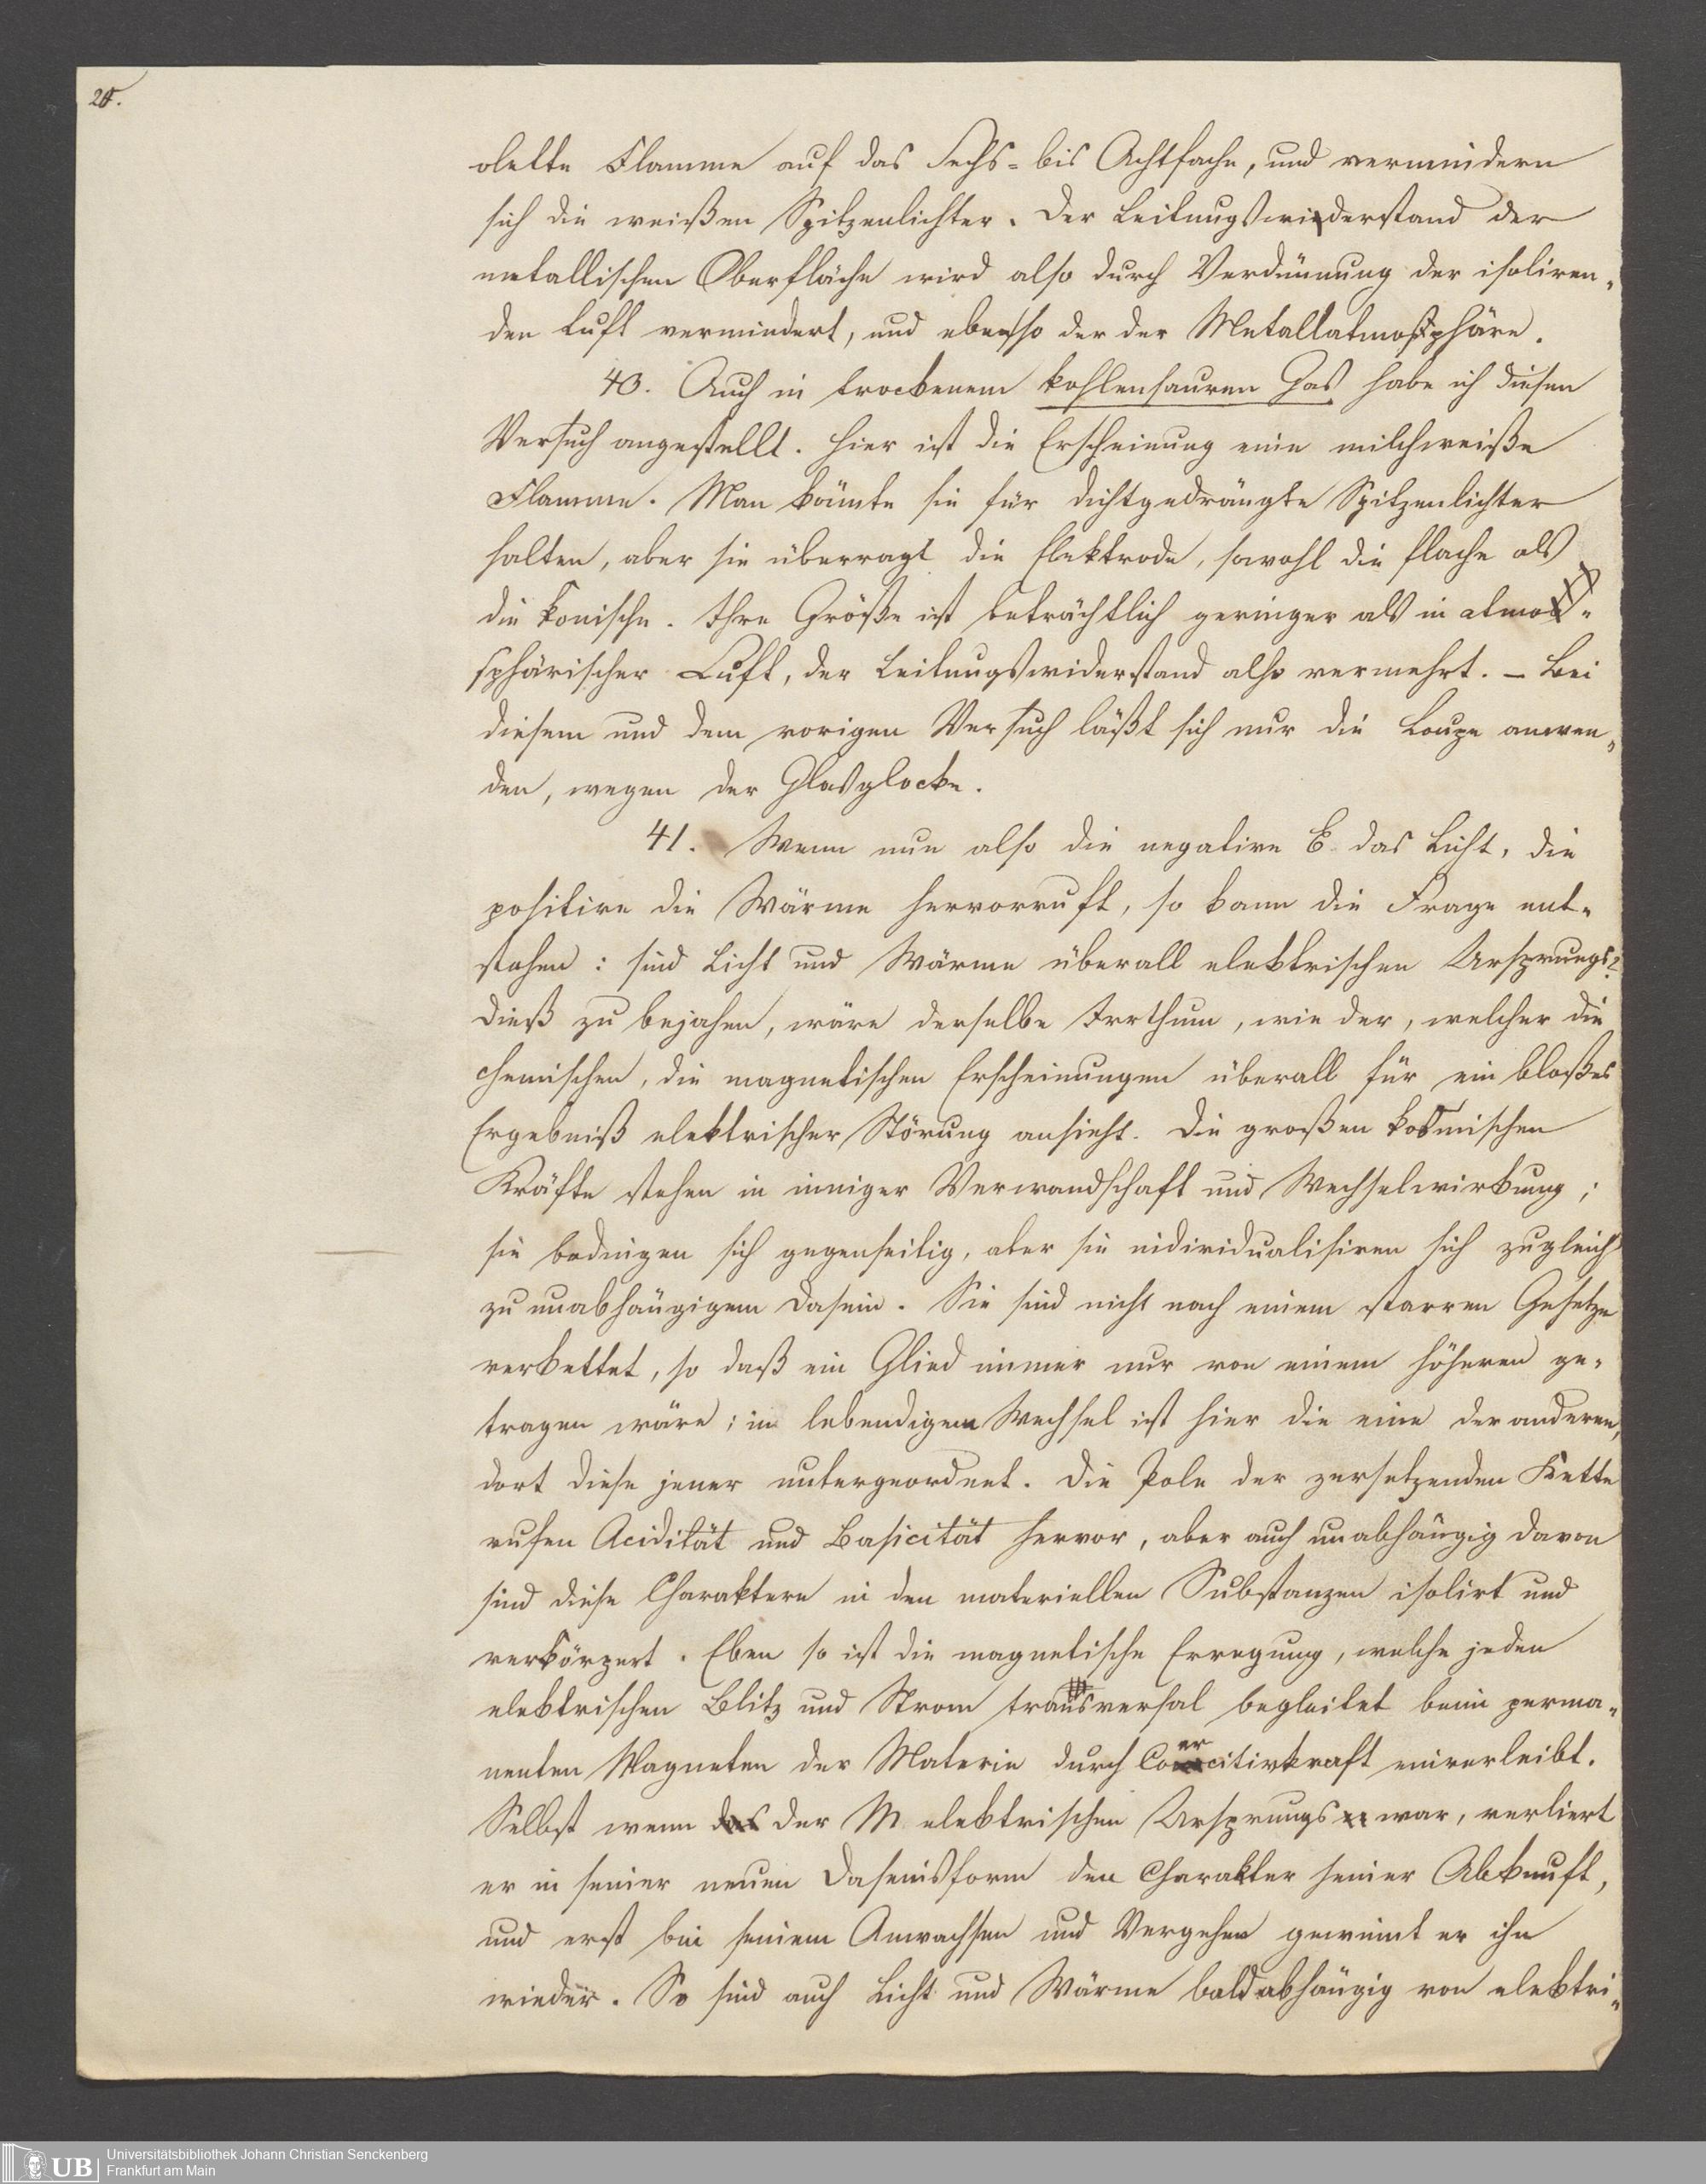 25.
olette Flamme auf das Sechs- bis Achtfache, und vermindern
sich die weißen Spitzenlichter. Der Leitungswiderstand der
metallischen Oberfläche wird also durch Verdünnung der isoliren-
den Luft vermindert, und ebenso der der Metallatmosphäre.
40. Auch in trockenem kohlensauren Gas habe ich diesen
Versuch angestellt. Hier ist die Erscheinung eine milchweiße
Flamme. Man könnte sie für dichtgedrängte Spitzenlichter
halten, aber sie überragt die Elektrode, sowohl die flache als
die konische. Ihre Größe ist beträchtlich geringer als in atmo-
sphärischer Luft, der Leitungswiderstand also vermehrt. – Bei
diesem und dem vorigen Versuch läßt sich nur die Loupe anwen-
den, wegen der Glasglocke.
41. Wenn nun also die negative E das Licht, die
positive die Wärme hervorruft, so kann die Frage ent-
stehen: sind Licht und Wärme überall elektrischen Ursprungs?
Dieß zu bejahen, wäre derselbe Irrthum, wie der, welcher die
chemischen, die magnetischen Erscheinungen überall für ein bloßes
Ergebniß elektrischer Störung ansieht. Die großen kosmischen
Kräfte stehen in inniger Verwandschaft und Wechselwirkung;
sie bedingen sich gegenseitig, aber sie individualisiren sich zugleich
zu unabhängigem Dasein. Sie sind nicht nach einem starren Gesetze
verkettet, so daß ein Glied immer nur von einem höheren ge-
tragen wäre; in lebendigem Wechsel ist hier die eine der anderen,
dort diese jener untergeordnet. Die Pole der zersetzenden Kette
rufen Acidität und Basicität hervor, aber auch unabhängig davon
sind diese Charaktere in den materiellen Substanzen isolirt und
verkörpert. Eben so ist die magnetische Erregung, welche jeden
elektrischen Blitz und Strom transversal begleitet beim perma-
nenten Magneten der Materie durch Coercitivkraft einverleibt.
Selbst wenn der M elektrischen Ursprungs war, verliert
er in seiner neuen Daseinsform den Charakter seiner Abkunft,
und erst bei seinem Anwachsen und Vergehen gewinnt er ihn
wieder. So sind auch Licht und Wärme bald abhängig von elektri-
UB
Universitätsbibliothek Johann Christian Senckenberg
Frankfurt am Main